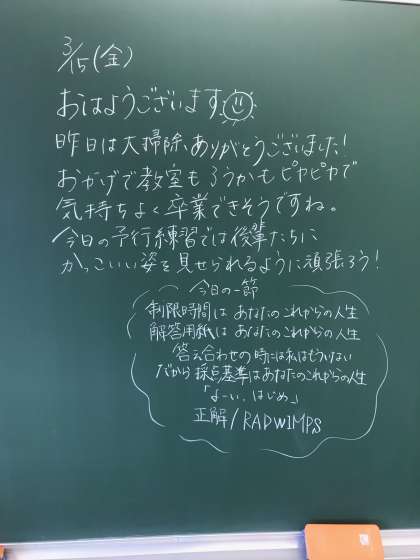 3/15(金)
おはようございます
昨日は大掃除、ありがとうございました！
おかげで教室もろうかもピカピカで
気持ちよく卒業できそうですね。
今日の予行練習では後輩たちに
かっこいい姿を見せられるように頑張ろう！
今日の一節
制限時間は あなたのこれからの人生
解答用紙は あなたのこれからの人生
答え合わせの時には私はもういない
だから 採点基準はあなたのこれからの人生
「よーい、はじめ」
正解/RADWIMPS